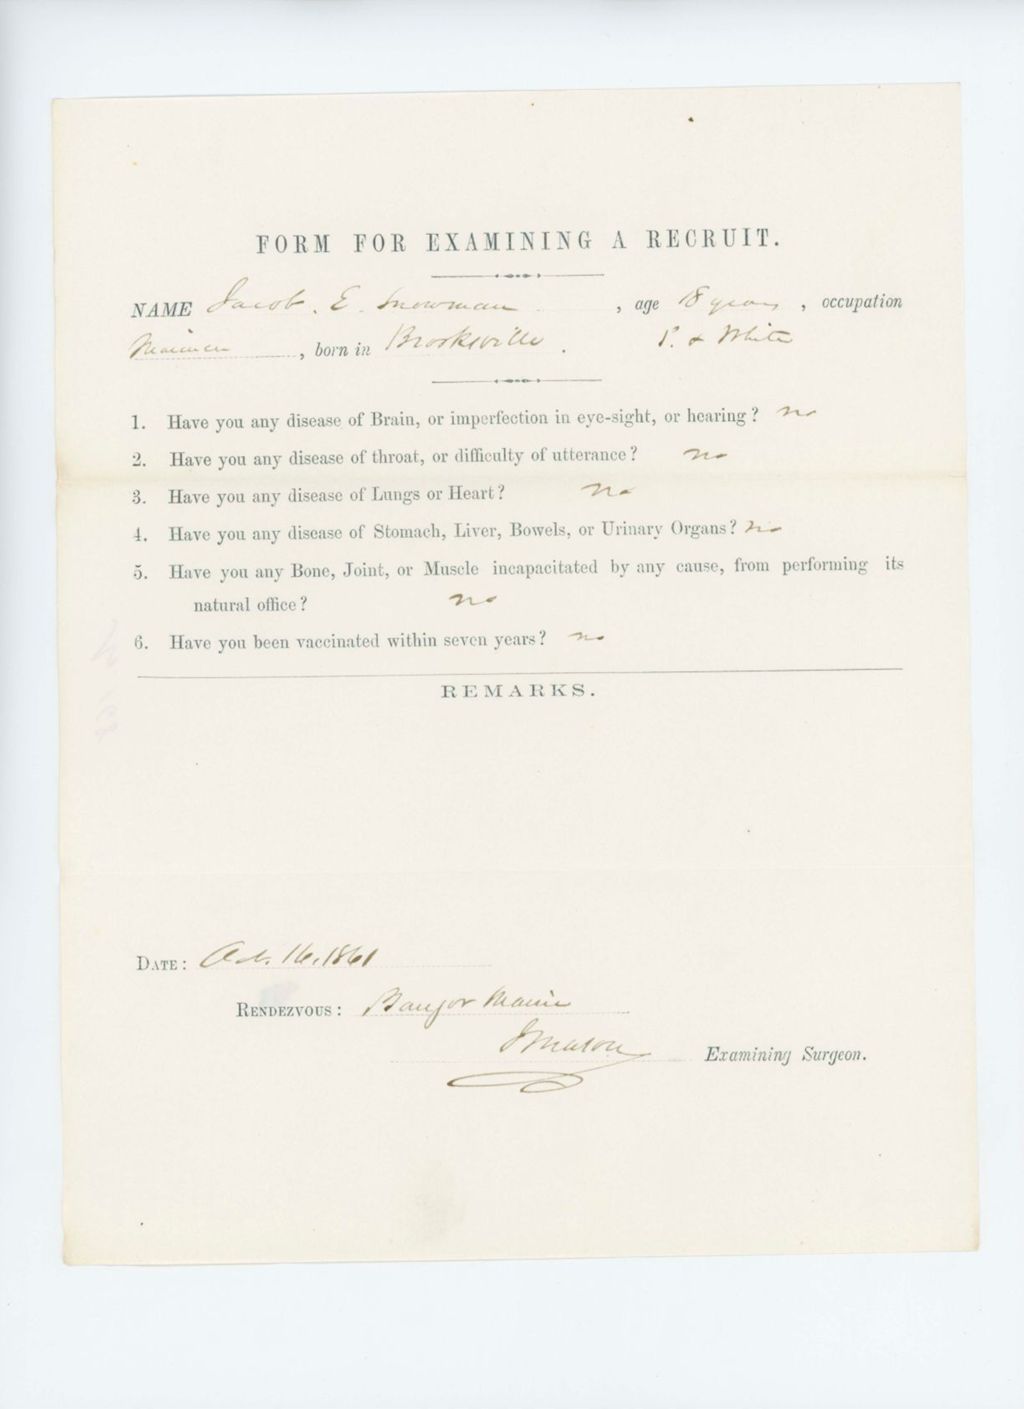 FORM FOR EXAMINING A RECRUIT.
NAME Jacob. E. Snowman , age 18 years , occupation
Mariner , born in Brooksville . P. & White
1. Have you any disease of Brain, or imperfection in eye-sight, or hearing? no
2. Have you any disease of throat, or difficulty of utterance? no
3. Have you any disease of Lungs or Heart? no
4. Have you any disease of Stomach, Liver, Bowels, or Urinary Organs? no
5. Have you any Bone, Joint, or Muscle incapacitated by any cause, from performing its
natural office? no
6. Have you been vaccinated within seven years? no
REMARKS.
DATE: Oct. 16, 1861
RENDEZVOUS: Bangor Maine
J Mason Examining Surgeon.